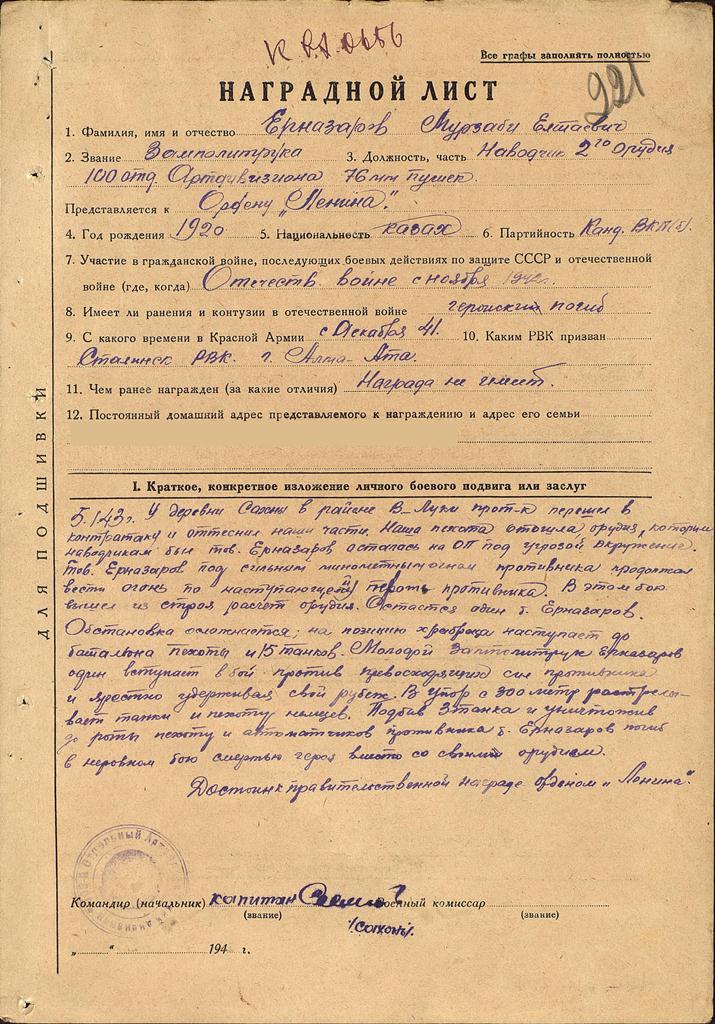 Все графы заполнять полностью
221
НАГРАДНОЙ ЛИСТ
1. Фамилия, имя и отчество Ерназаров Мурзаби Елтаевич
2. Звание Замполитрука 3. Должность, часть Наводчик 2го орудия
100 отд. Артдивизиона 76 мм пушек.
Представляется к Ордену „Ленина".
4. Год рождения 1920 5. Национальность казах 6. Партийность Канд. ВКП(б).
7. Участие в гражданской войне, последующих боевых действиях по защите СССР и отечественной
войне (где, когда) Отечеств. войне с ноября 1942г.
8. Имеет ли ранения и контузии в отечественной войне геройски погиб
9. С какого времени в Красной Армии с Декабря 41. 10. Каким РВК призван
Сталинск РВК. г. Алма-Ата.
11. Чем ранее награжден (за какие отличия) Награда не имеет.
12. Постоянный домашний адрес представляемого к награждению и адрес его семьи
ДЛЯ ПОДШИВКИ
I. Краткое, конкретное изложение личного боевого подвига или заслуг
5.1.43г. У деревни в районе В-Луки прот-к перешел в
контратаку и оттеснил наши части. Наша пехота отошла, орудия, которым
наводчикам был тов. Ерназаров осталась на ОП под угрозой окружения.
Тов. Ерназаров под сильным минометным огнем противника продолжал
вести огонь по наступающей противника. В этом бою
вышел из строя расчет орудия. Остается один т. Ерназаров.
Обстановка осложнается; на позицию храбреца наступает до
батальона пехоты и 15 танков. Молодой Замполитрук Ерназаров
один вступает в бой против превосходящих сил противника
и яростно удерживая свой рубеж. В упор с 300 метр расстрели-
вает танки и пехоту немцев. Подбив 3 танка и уничтожив
до роты пехоту и автоматчиков противника т. Ерназаров погиб
в неровном бою смертью героя вместо со своим орудием.
Достоин к правительственной награде орденом „Ленина".
Командир (начальник) капитан Военный комиссар
(звание) (звание)
„ “ 194 г.